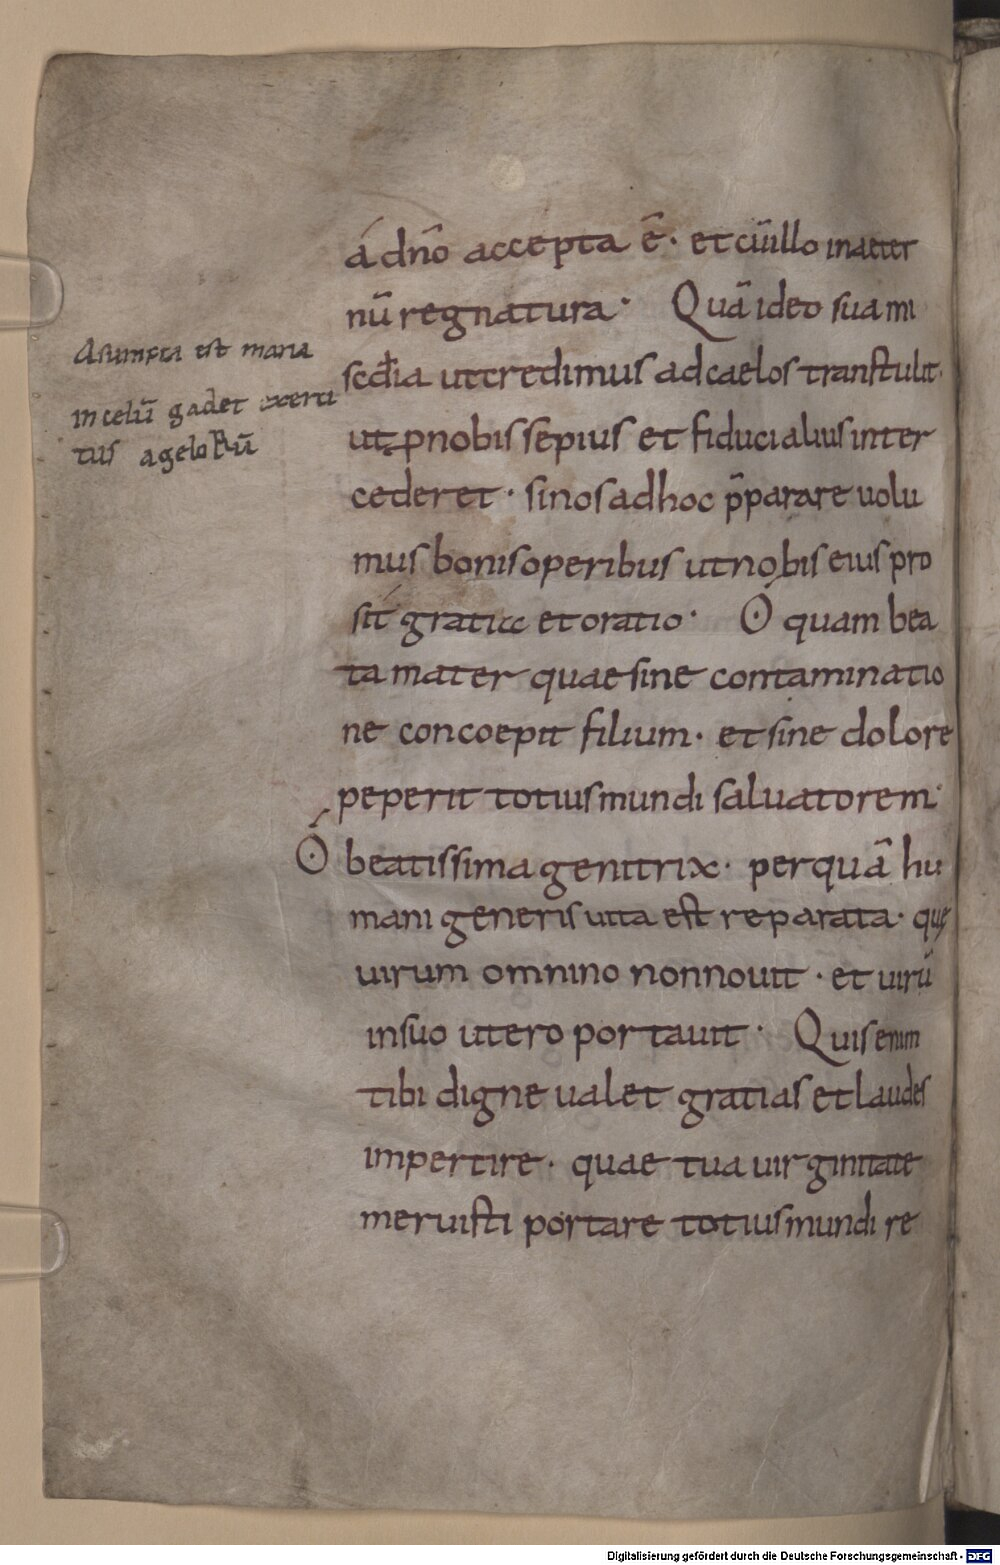 Asumpta est maria
in celū gadet exerci
tus ageloRū
á dn̄o accepta ē· et cū illo in aeter
nū regnatura· Quā ideo sua mi
sc̄dia ut credimus ad caelos transtulit·
ut ꝓ nobis sepius et fiducialius inter
cederet· si nos ad hoc p̄parare uolu
mus bonis operibus ut nobis eius pro
sit gratia et oratio· Ó quam bea
ta mater quae sine contaminatio
ne concoepit filium· et sine dolore
peperit totius mundi saluatorem·
Ó beatissima genitrix· per quā hu
mani generis uita est reparata· quę
uirum omnino non nouit· et uirū
in suo utero portauit· Quis enim
tibi digne ualet gratias et laudes
impertire· quae tua uirginitate
meruisti portare totius mundi re
Digitalisierung gefördert durch die Deutsche Forschungsgemeinschaft - DFG